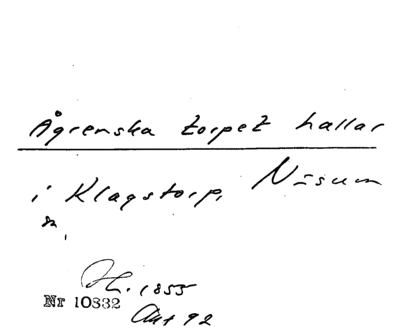 Ågrenska torpet hallar
i Klagstorp, Näsum
sn.
1855
Nr 10332
Akt 92